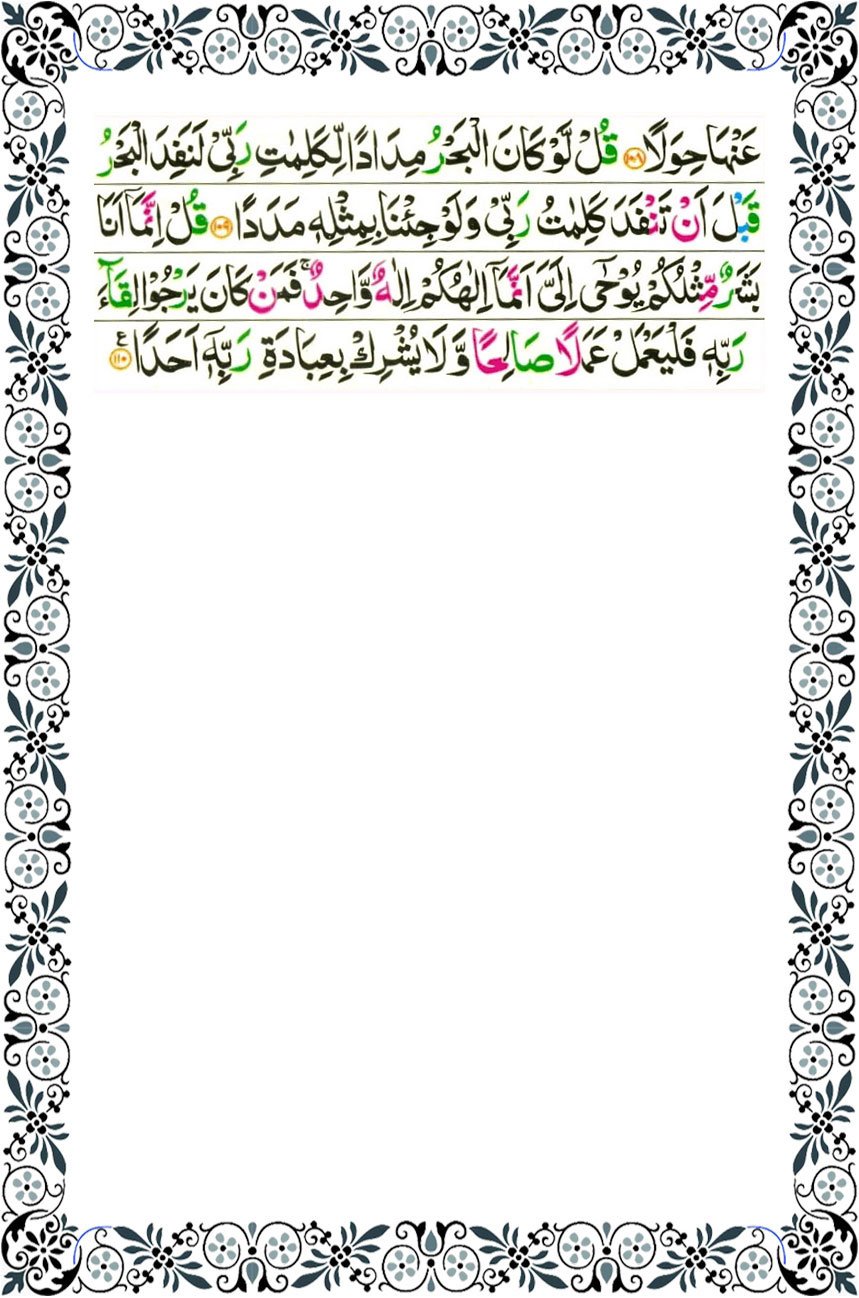 عَنْهَا حِوَلًا ﴿۱۰۸﴾ قُلْ لَّوْ كَانَ الْبَحْرُ مِدَادًا لِّكَلِمٰتِ رَبِّیْ لَنَفِدَ الْبَحْرُ
قَبْلَ اَنْ تَنْفَدَ كَلِمٰتُ رَبِّیْ وَلَوْ جِئْنَا بِمِثْلِهٖ مَدَدًا ﴿۱۰۹﴾ قُلْ اِنَّمَاۤ اَنَا
بَشَرٌ مِّثْلُكُمْ یُوْحٰۤی اِلَیَّ اَنَّمَاۤ اِلٰهُكُمْ اِلٰهٌ وَّاحِدٌ ۚ فَمَنْ كَانَ یَرْجُوْا لِقَآءَ
رَبِّهٖ فَلْیَعْمَلْ عَمَلًا صَالِحًا وَّلَا یُشْرِكْ بِعِبَادَةِ رَبِّهٖۤ اَحَدًا ﴿۱۱۰﴾ ع